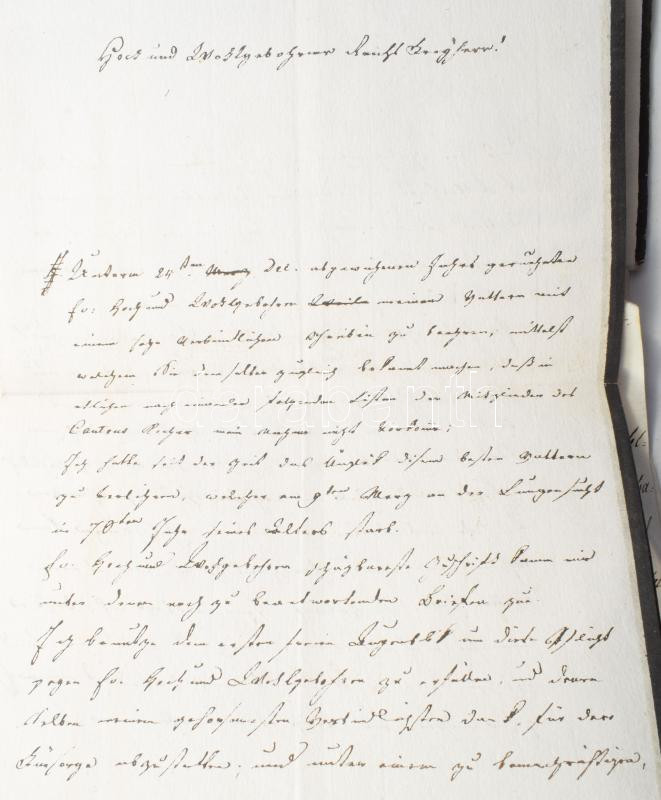 Hoch und Wohlgebohrner Reichs Freyherr!
Unterm 24ten Merz Dec. abgewichenen Jahrs geruheten
Er: Hoch und Wohlgebohren meinen Vattern mit
einem sehr verbindlichen Schreiben zu beehren, mittelst
welchem Sie demselben zugleich bekannt machen, daß in
etlichen nach einander folgenden Listen der Mitglieder des
Cantons Kocher mein Nahme nicht vorkomme;
Ich hatte seit der Zeit das Unglük disen besten Vattern
zu verliehren, welcher am 9ten Merz an der Lungensucht
im 70ten Jahr seines Alters starb.
Er. Hoch und Wohlgebohren schäzbareste Zuschrift kam mir
unter denen noch zu beantwortenden Briefen zue.
Ich benutze den ersten freien Augenblik um diese Pflicht
gegen Er. Hoch und Wohlgebohren zu erfüllen, und denen
selben meinen gehorsamsten verbindlichsten Dank, für dero
Fürsorge abzustatten; und unter einem zu benachrichtigen,
darabanth